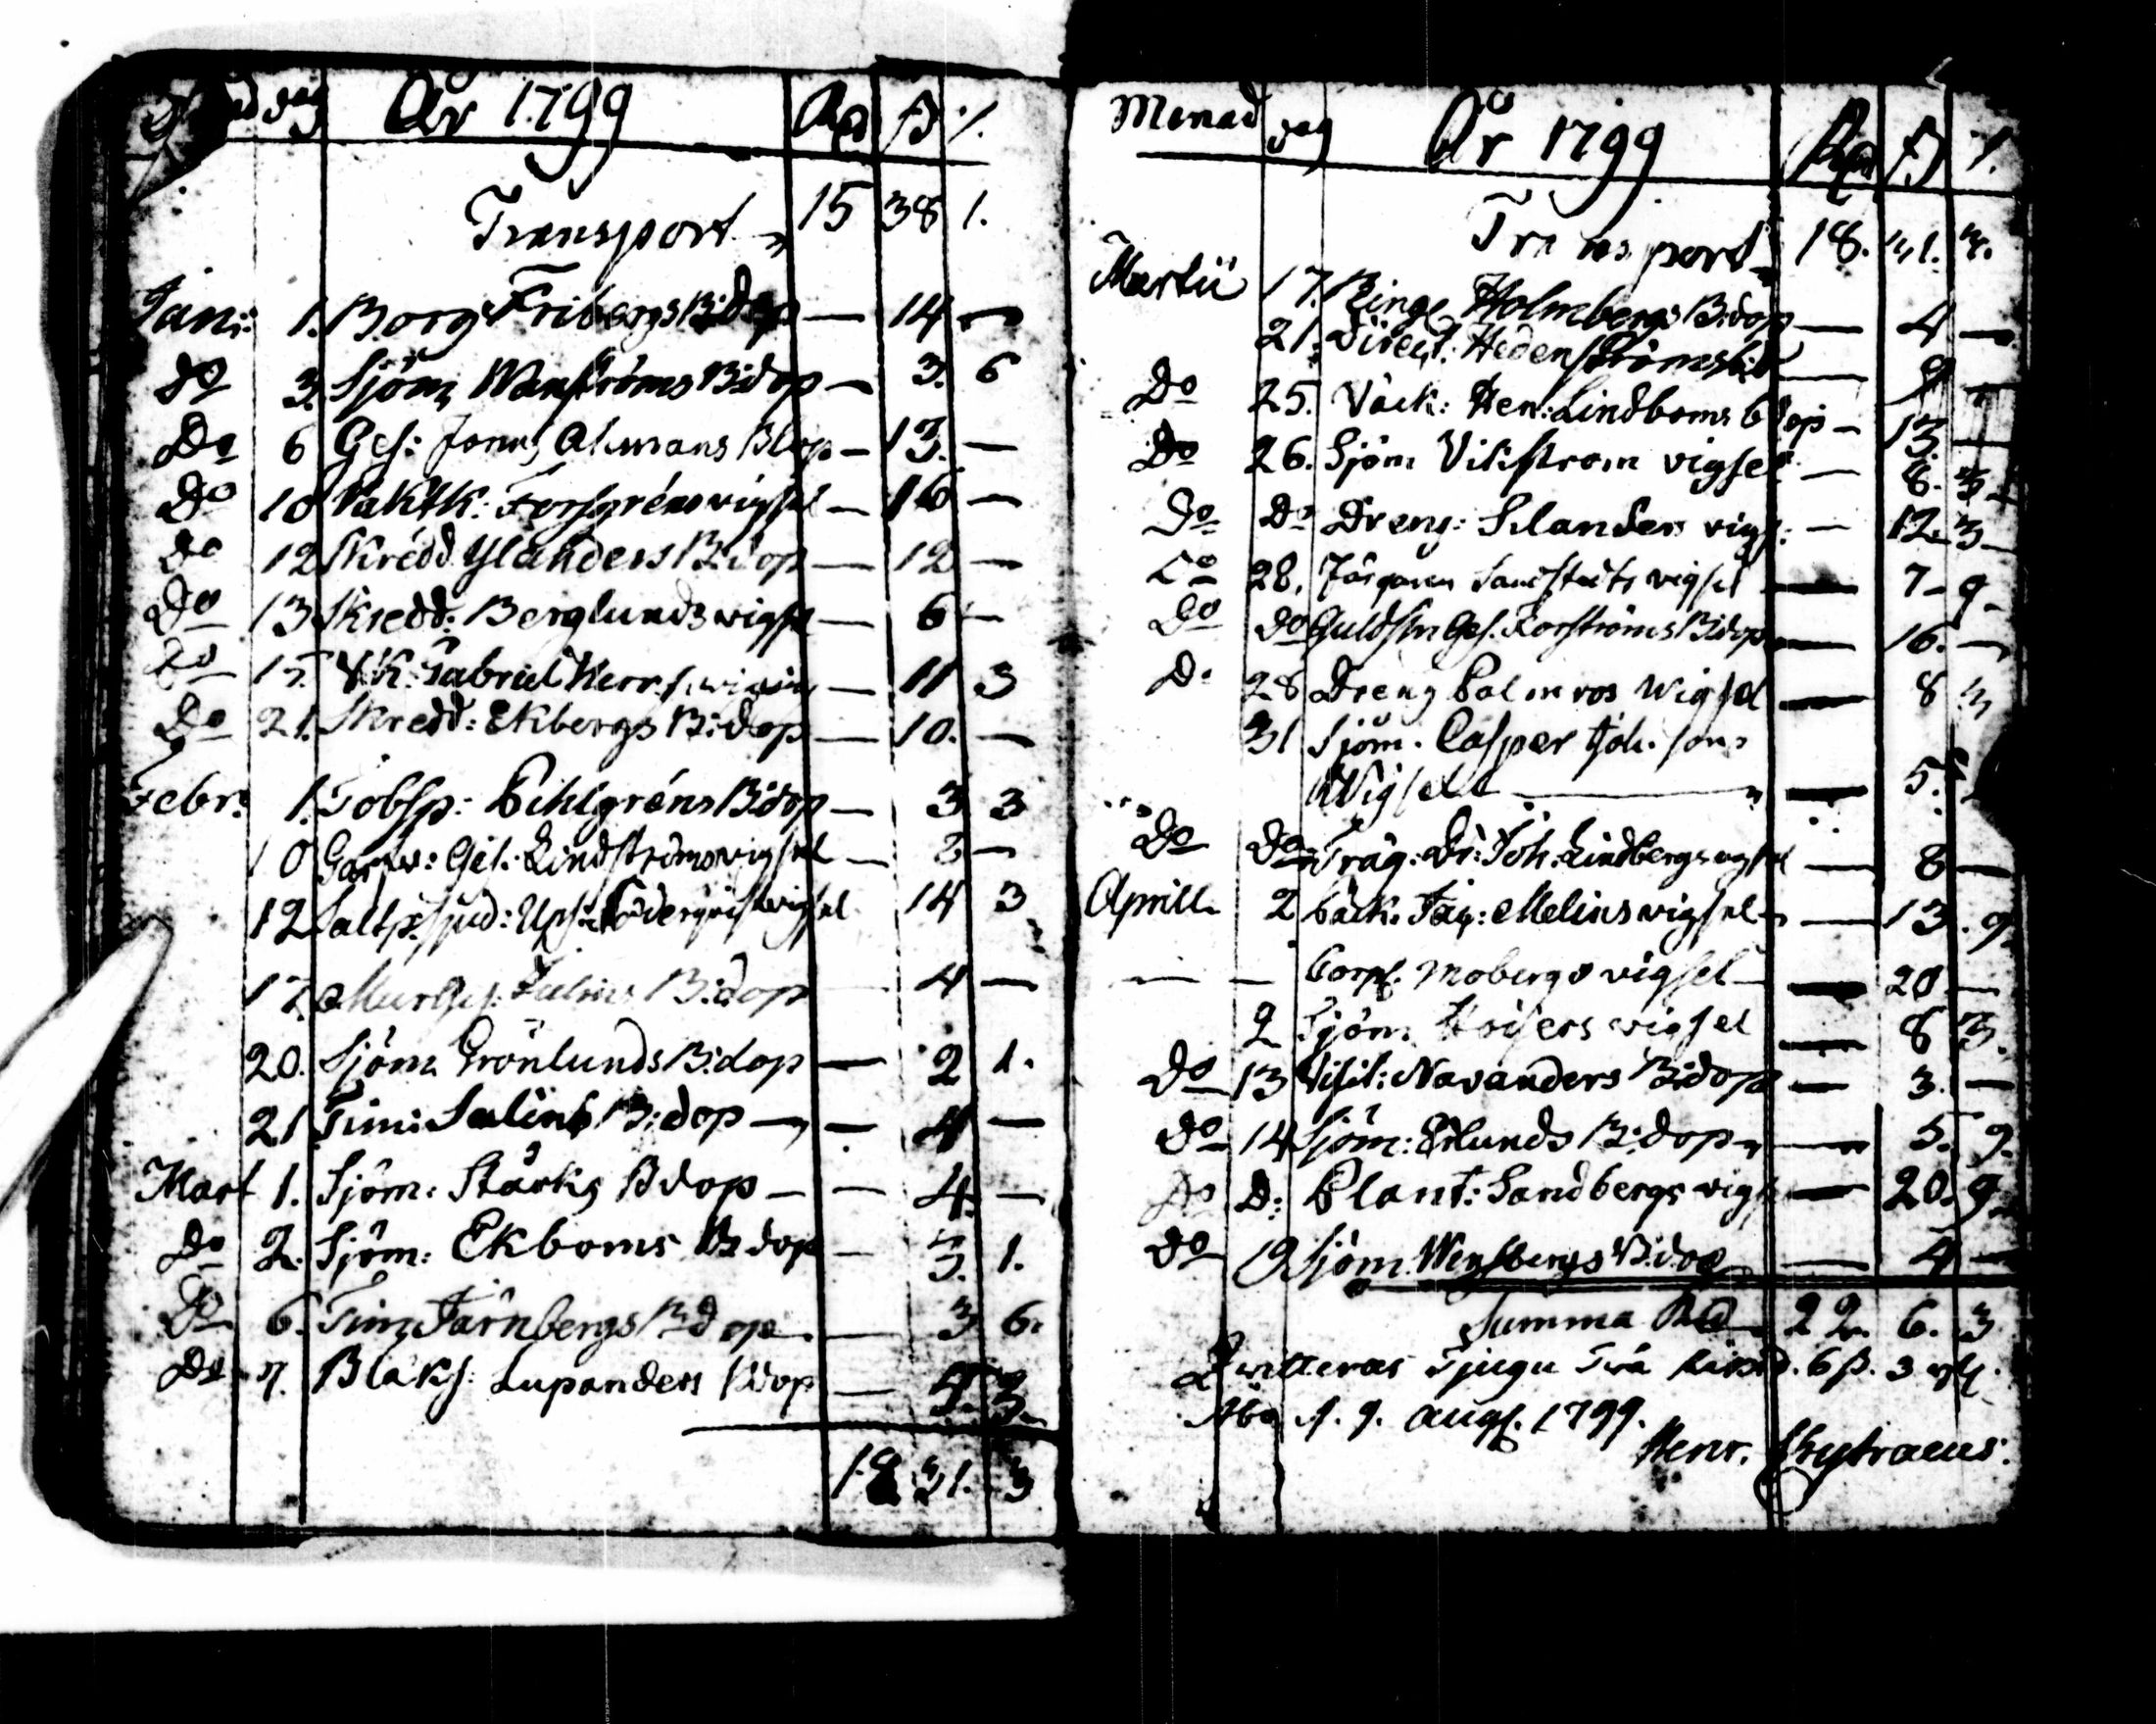 dag År 1799 Rd ß /.
Transport 15 38 1.
Jan: 1. Borg Fribergs B:dop — 14 —
Do 3. Sjöm Wenströms B:dop — 3. 6
Do 6 Ges: Jonas Ahmans B:dop — 13. —
Do 10 Vaktk: Forsgréns vigsel — 16 —
Do 12 Skrédd Ylanders B:dop — 12 —
Do 13 Skredd: Berglunds vigsel — 6 —
Do 15. Gabriel — 11 3
Do 21. Skredd: Ekbergs B:dop — 10. —
Febr. 1. Tobsp: Pihlgréns B:dop — 3 3
10 Garfv: Ges: Lindströms vigsel — 2 —
12 Söderqvist vigsel 14 3
17. B:dop — 4 —
20. Sjöm Grönlunds B:dop — 2 1.
21 Tim: Salins B:dop — 4 —
Mart 1. Sjöm: Starks B dop — 4. —
Do 2. Sjöm: Ekboms B:dop — 3. 1.
Do 6. Tim Färnbergs B:dop — 3 6.
Do 7. Blaks: Lupanders B:dop — 5. 3.
18 31. 3
Monad dag År 1799 Rd ß /.
Transport 18. 31. 3.
Martii 17. Ringk Holmbergs B:dop — 4 —
21. Direct: Hedenströms — 9 —
Do 25. Väck: Hen: Lindboms bdop — 13. —
Do 26. Sjöm Vikstrom vigsel — 8. 3
Do Do Dreng: Selanders vigs: — 12. 3
Do 28. Färgaren Sandstedts vigsel — 7 - 9 -
Do Do Guldsm Ges. Forströms B:dop — 16. —
Do 28 Dreng Palmros Wigsel — 8 3
31 Sjöm. Casper Joh. sons
Wigsell — 5.
Do Do Träg: Dr: Joh: Lindbergs vigsel — 8 —
Aprill 2 bäck. Melins vigsel — 13. 9
— — Corpl. Mobergs vigsel — 20 —
2 Sjöm vigsel — 8 3.
Do 13 Visit: Navanders B:dop — 3. —
Do 14 Sjöm: Edlunds B:dop — 5. 9.
Do D: Plant: Sandbergs vigs — 20. 9
Do 19 Sjöm Wensbergs B:dop — 4 —
Summa Rd 22. 6. 3
Quitteras Tjugu Två Riksd. 6 ß. 3
Åbo d. 9. augs. 1799.
Henr. Chytraeus.